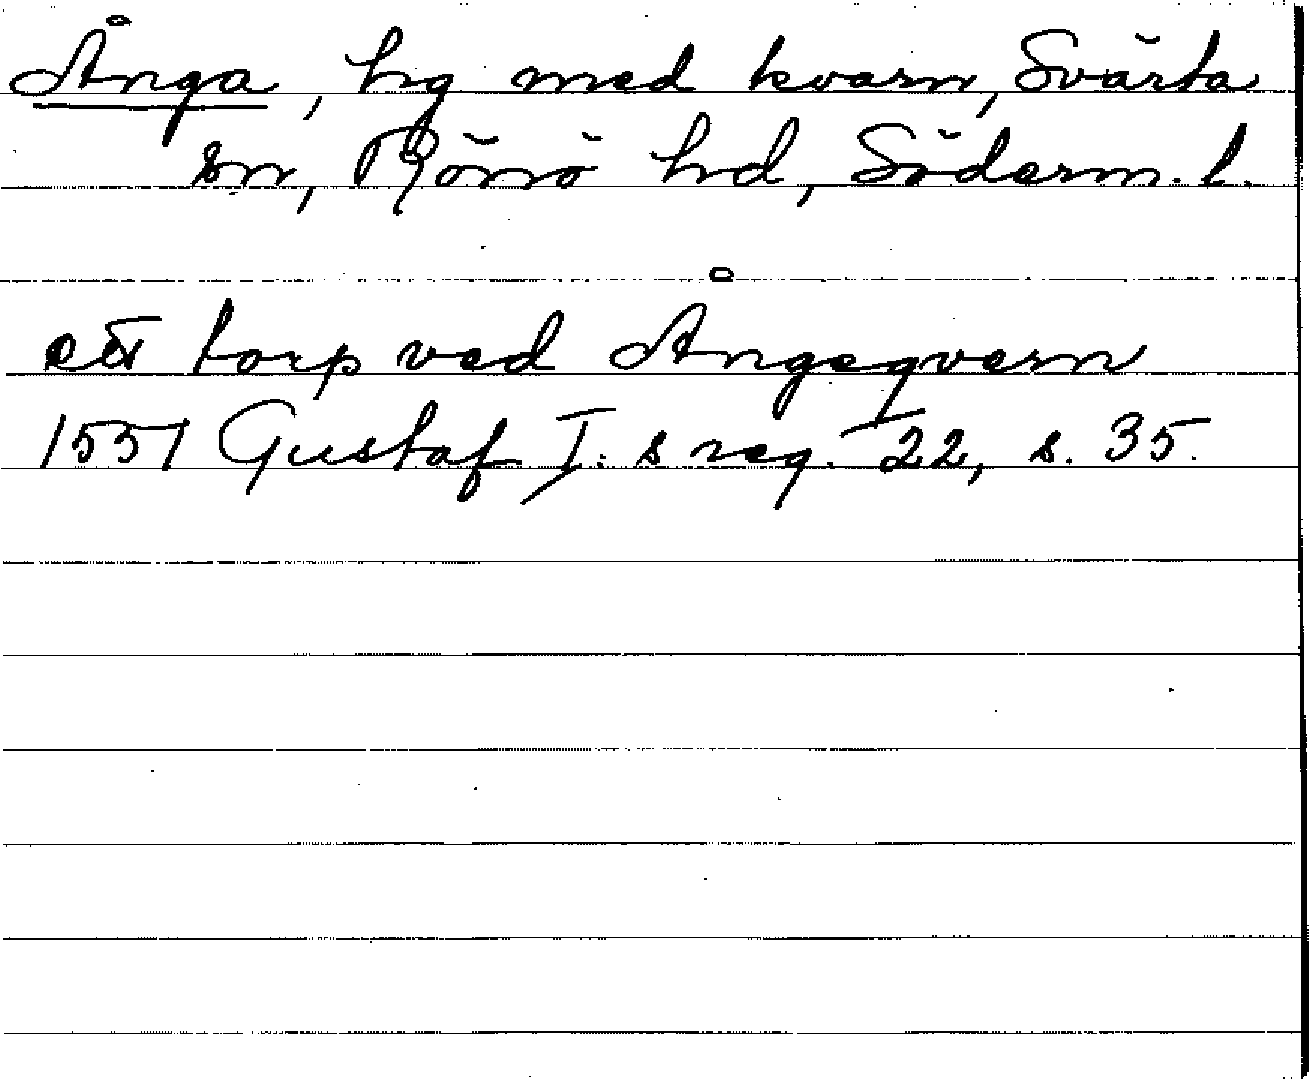 Ånga, hg med kvarn, Svärta
sn, Rönö hd, Söderm. l.
ett torp ved Ångeqvern
1551 Gustaf I:s reg. 22, s. 35.